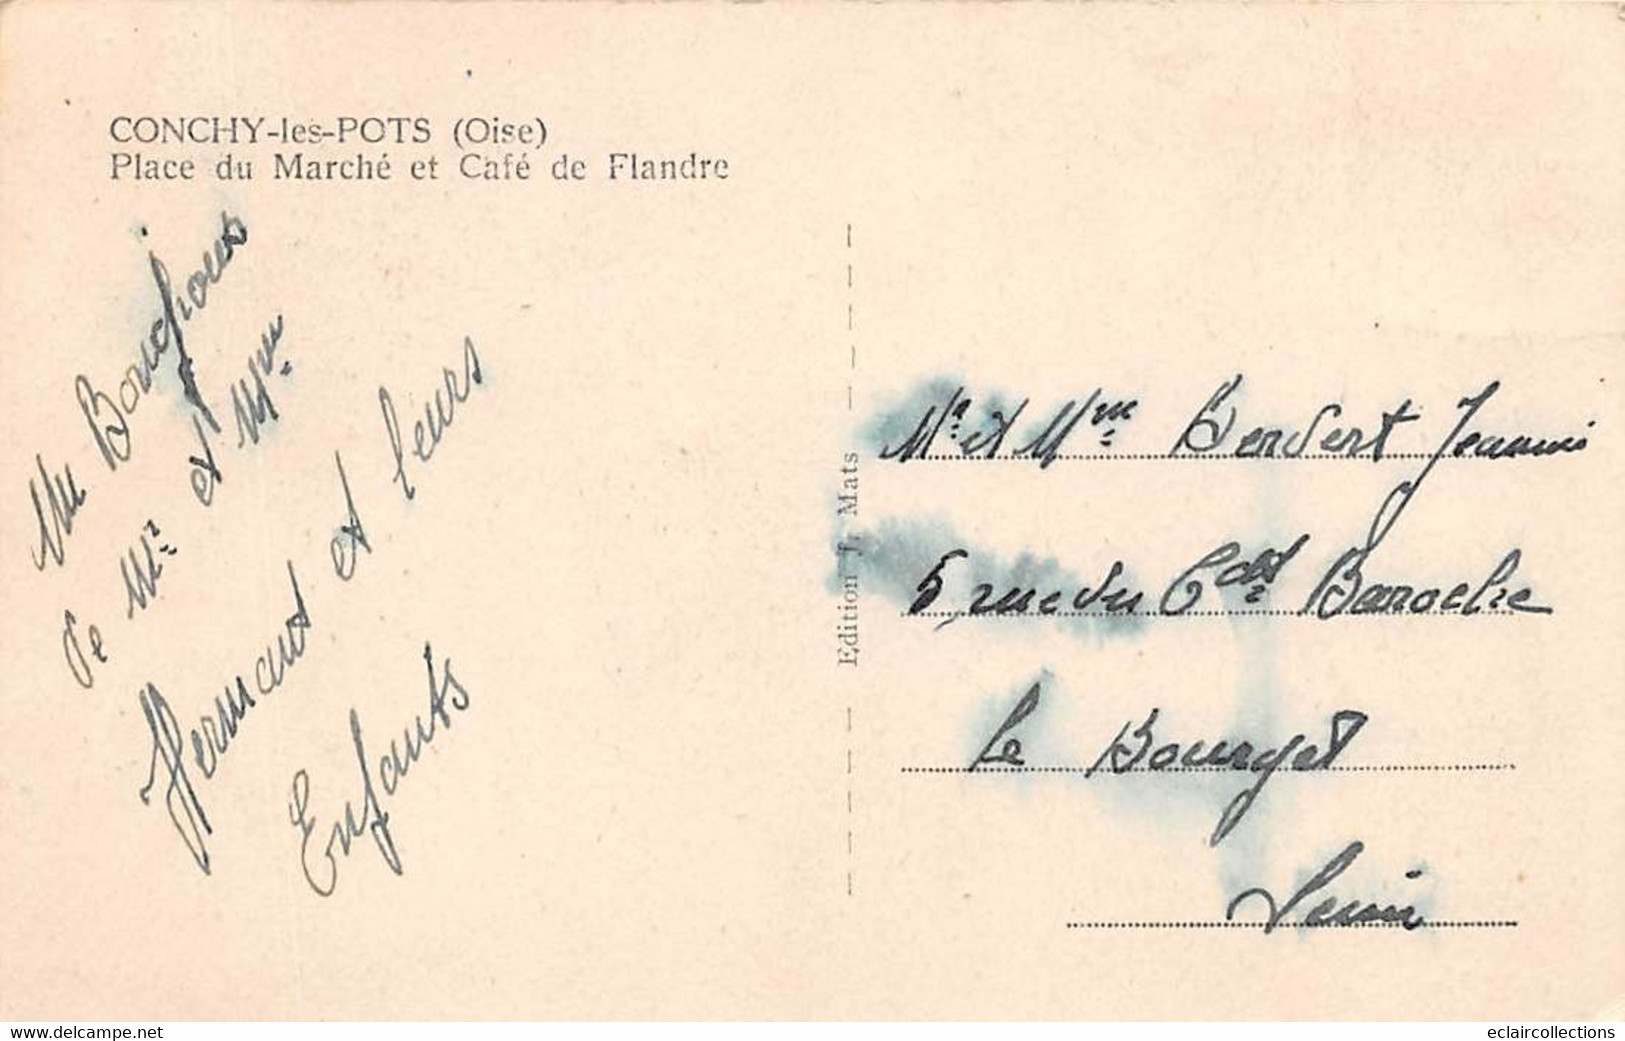 CONCHY-les-POTS (Oise)
Place du Marché et Café de Flandre
Un Bonjour
de Mr et Mme
Hermant et leurs
Enfants
Edition J. Mats
Mr et Mme
5 rue du Cdt Baroche
Le Bourget
Seine
www.delcampe.net
eclaircollections